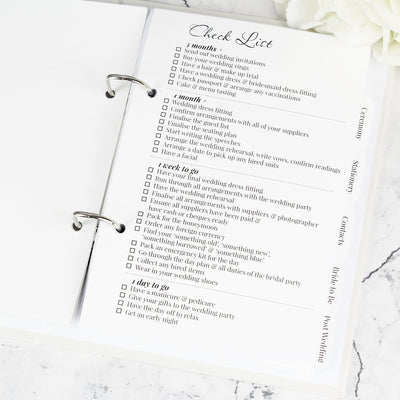 Check List
2 months +
Send out wedding invitations
Buy your wedding rings
Have a hair & make up trial
Have a wedding dress & bridesmaid dress fitting
Check passport & arrange any vaccinations
Cake & menu tasting
1 month +
Wedding dress fitting
Confirm arrangements with all of your suppliers
Finalise the guest list
Finalise the seating plan
Start writing the speeches
Arrange the wedding rehearsal, write vows, confirm readings
Arrange a date to pick up any hired suits
Have a facial
1 week to go
Have your final wedding dress fitting
Run through all arrangements with the wedding party
Have the wedding rehearsal
Finalise all arrangements with suppliers & photographer
Ensure all suppliers have been paid &
have cash or cheques ready
Pack for the honeymoon
Order any foreign currency
Find your 'something old', 'something new',
'something borrowed' & 'something blue'
Pack an emergency kit for the day
Go through the day plan & all duties of the bridal party
Collect any hired items
Wear in your wedding shoes
1 day to go
Have a manicure & pedicure
Give your gifts to the wedding party
Have the day off to relax
Get an early night
Ceremony
Stationery
Contacts
Bride to Be
Post Wedding